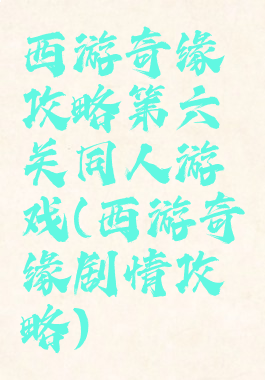 西游奇缘
攻略第六
关同人游
戏(西游奇
缘剧情攻
略)